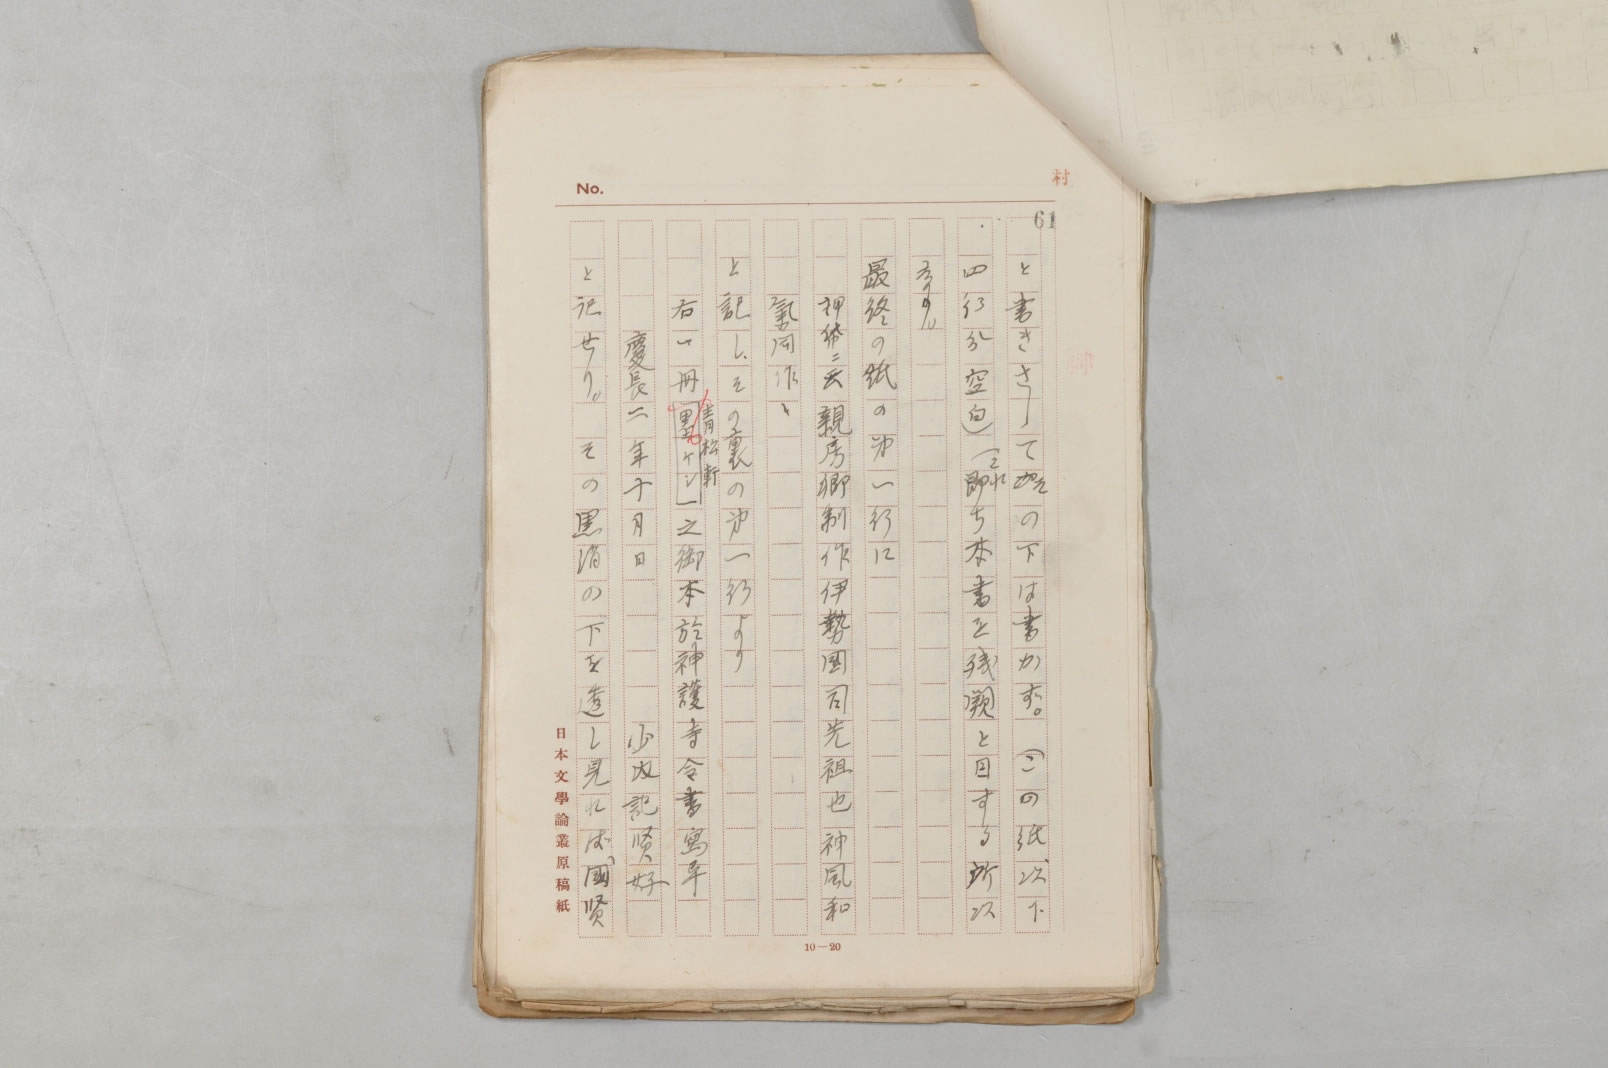 No.
村
61
と書きさして the下は書かず。(この紙次下
四行分空白)(これ即ち本書を残闕と目する所以
なり。
最終の紙の第一行に
押紙ニ云親房卿制作伊勢國司先祖也神風和
氣同作〻
と記し、その裏の第一行より
右一冊[墨ケシ]之御本於神護寺令書寫畢
青松軒
慶長二年十月日　少内記賢好
と記せり。その黒消の下を透し見れば、國賢
日本文學論叢原稿紙
10—20